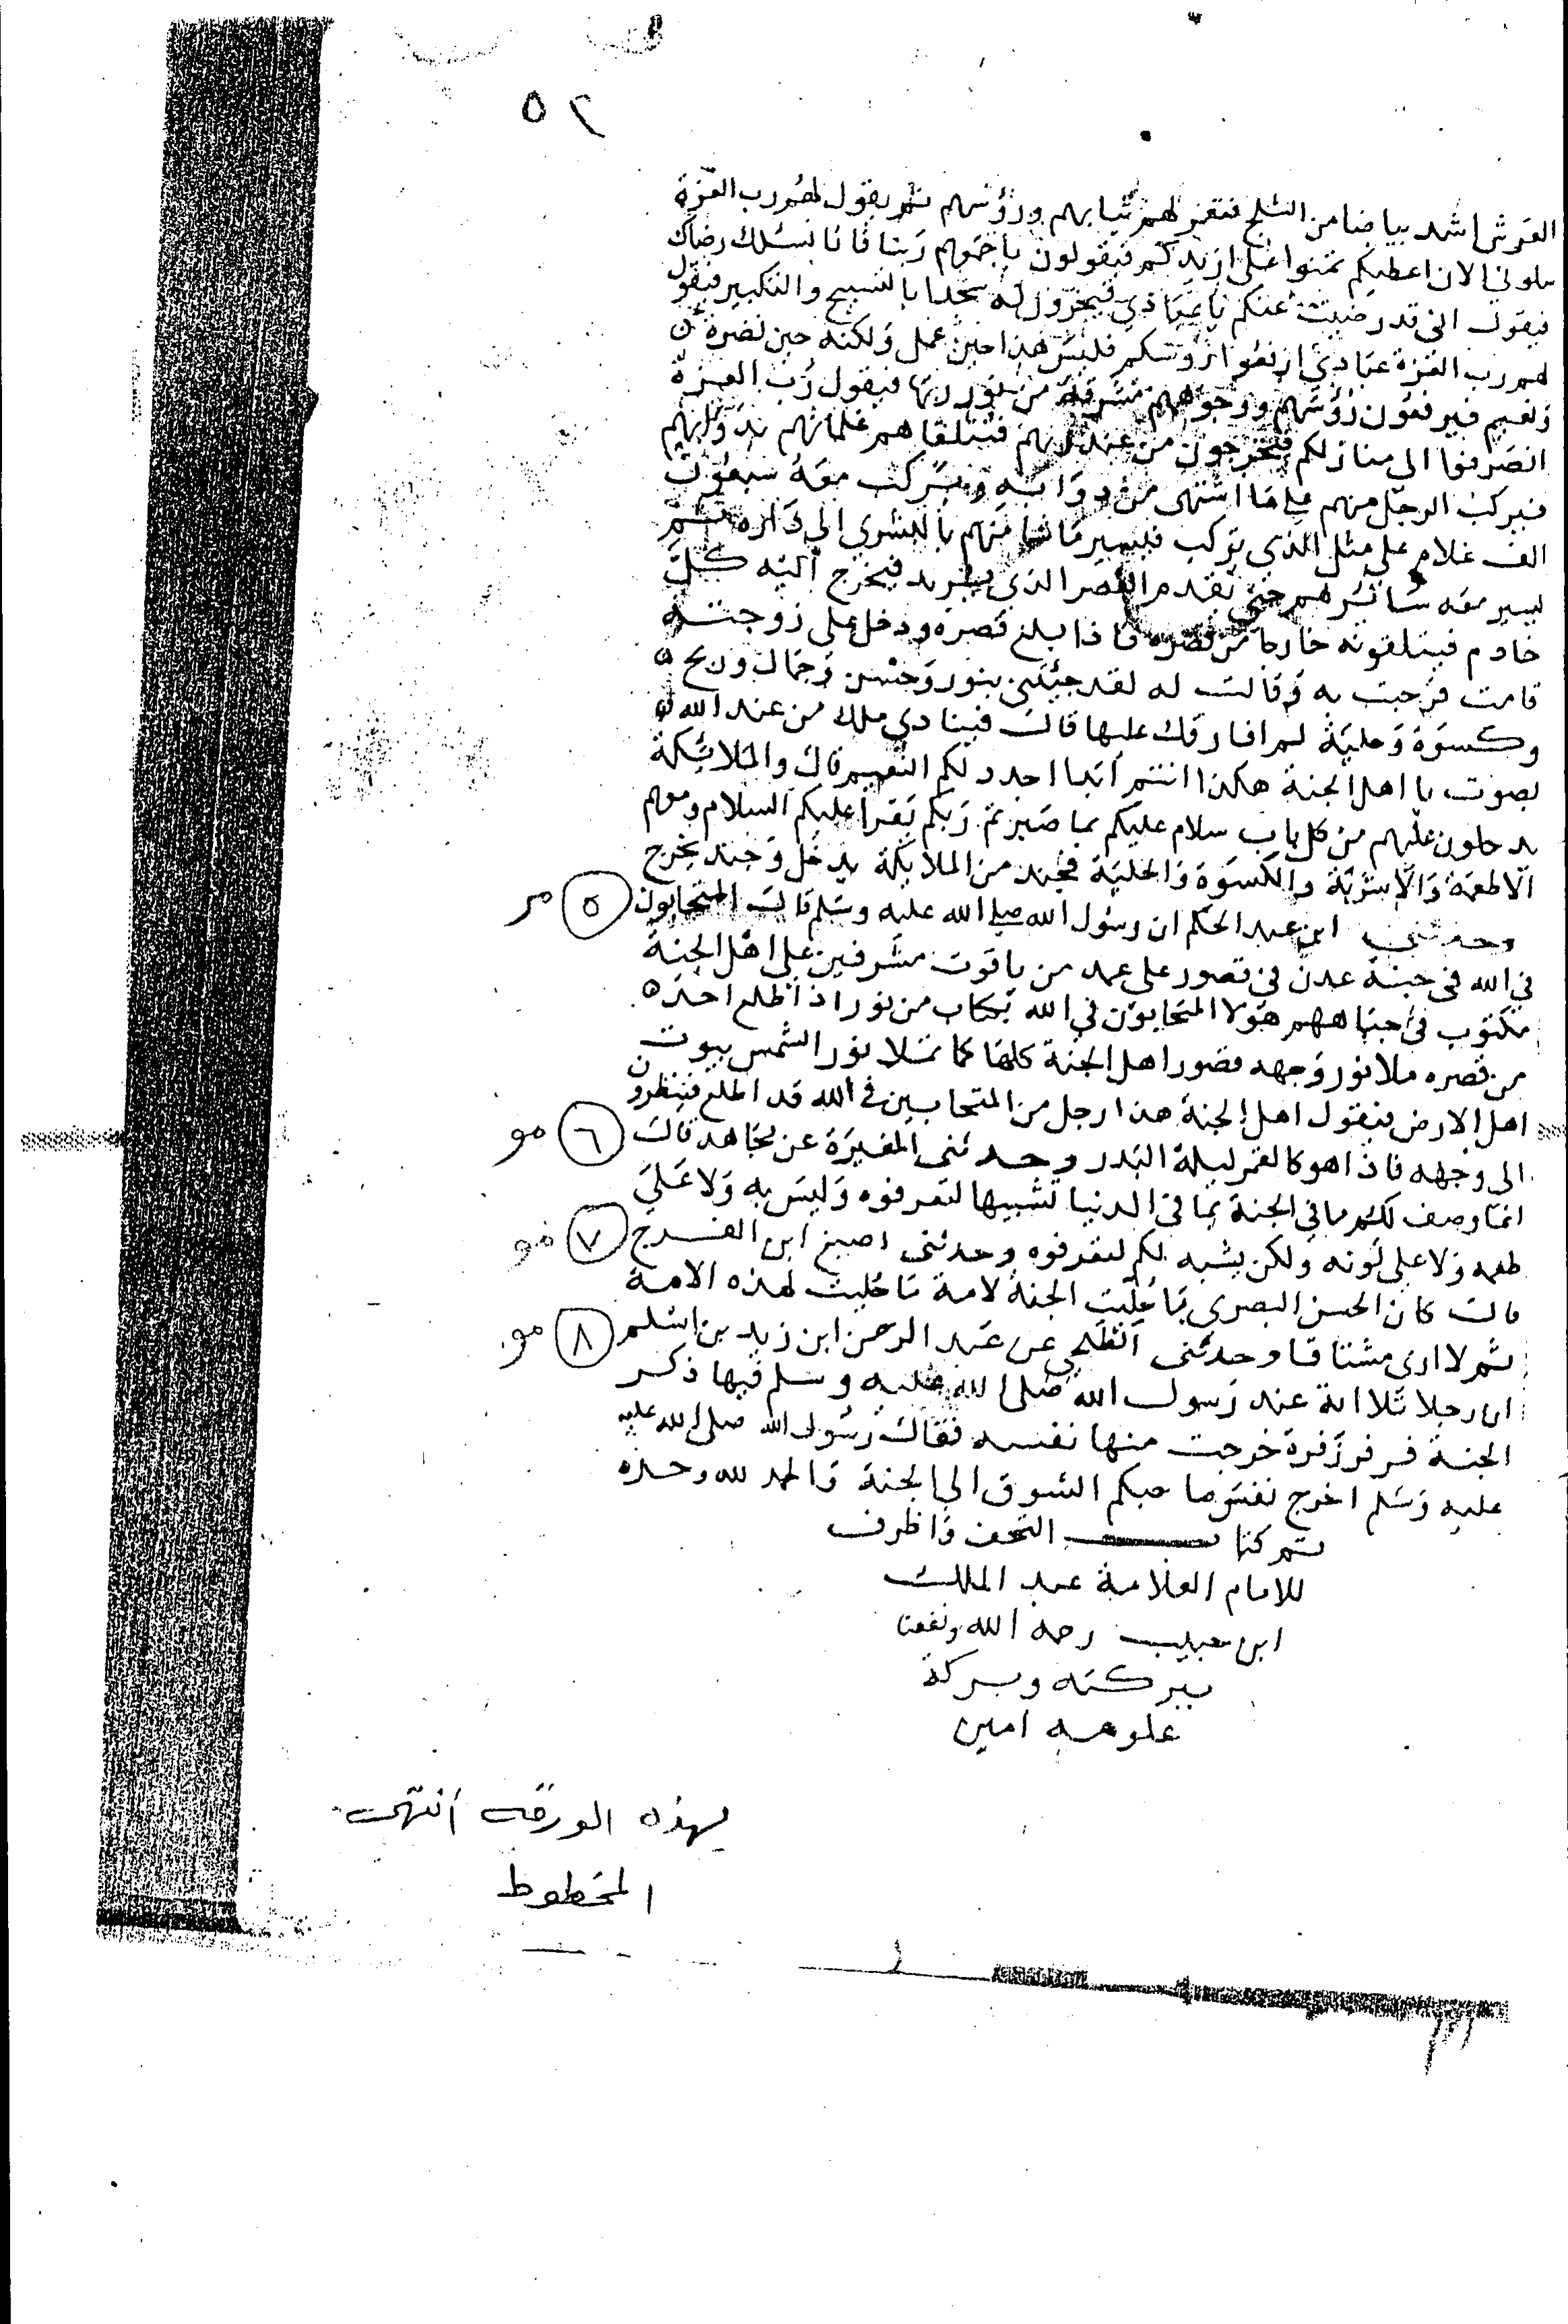 ٥٢
العرش اشد بياضا من الثلج فتغبر لهم ثيابهم ورؤسهم ثم يقول لهم رب العزة
سلوني الان اعطيكم تمنوا على ازيدكم فيقولون باجمعهم ربنا فانا نسئلك رضاك
فيقول اني قد رضيت عنكم يا عبادي فيخرون له سجدا بالتسبيح والتكبير فيقول
لهم رب العزة عبادي ارفعوا رؤسكم فليس هذا حين عمل ولكنه حين نضرة
ونعيم فيرفعون رؤسهم ووجوههم مشرقة من نور ربها فيقول رب العزة
انصرفوا الى منازلكم فيخرجون من عند ربهم فتتلقاهم غلمانهم بدوابهم
فيركب الرجل منهم على ما اشتهى من دوابه ويركب معه سبعون
الف غلام على مثل الذي يركب فيسير ما شا منهم بالبشرى الى داره ثم
يسير معه سائرهم حتى يقدم القصر الذي يريد فيخرج اليه كل
خادم فيتلقونه خارجا من قصره فاذا بلغ قصره ودخل على زوجته
قامت فرحبت به وقالت له لقد جئتني بنور وحسن وجمال وريح
وكسوة وحلية لم افارقك عليها قال فينادي ملك من عند الله
بصوت يا اهل الجنة هكذا انتم ابدا اجدد لكم النعيم قال والملائكة
يدخلون عليهم من كل باب سلام عليكم بما صبرتم ربكم يقرا عليكم السلام ومعهم
الاطعمة والاشربة والكسوة والحلية فجند من الملائكة يدخل وجند يخرج
وحدثني ابن عبد الحكم ان رسول الله صلى الله عليه وسلم قال المتحابون ٥ مر
في الله في جنة عدن في قصور على عمد من ياقوت مشرفين على اهل الجنة
مكتوب في جباههم هولا المتحابون في الله بكتاب من نور اذا اطلع احدهم
من قصره ملا نور وجهه قصور اهل الجنة كلها كما تملا نور الشمس بيوت
اهل الارض فيقول اهل الجنة هذا رجل من المتحابين في الله قد اطلع فينظرون
الى وجهه فاذا هو كالقمر ليلة البدر وحدثني المغيرة عن مجاهد قال ٦ مو
انما وصف لكم ما في الجنة بما في الدنيا تشبيها لتعرفوه وليس به ولا على
طعمه ولا على لونه ولكن يشبه لكم لتعرفوه وحدثني اصبغ ابن الفرج ٧ مو
قال كان الحسن البصري ما حليت الجنة لامة ما حليت لهذه الامة
ثم لا ارى مشتاقا وحدثني الطلحي عن عبد الرحمن ابن زيد بن اسلم ٨ مو
ان رجلا تلا اية عند رسول الله صلى الله عليه وسلم فيها ذكر
الجنة فزفر زفرة خرجت منها نفسه فقال رسول الله صلى الله عليه
عليه وسلم اخرج نفس صاحبكم الشوق الى الجنة والحمد لله وحده
تم كتاب التحف واظرف
للامام العلامة عبد الملك
ابن حبيب رحمه الله ونفعنا
ببركته وبركة
علومه امين
بهذه الورقة انتهى
المخطوط